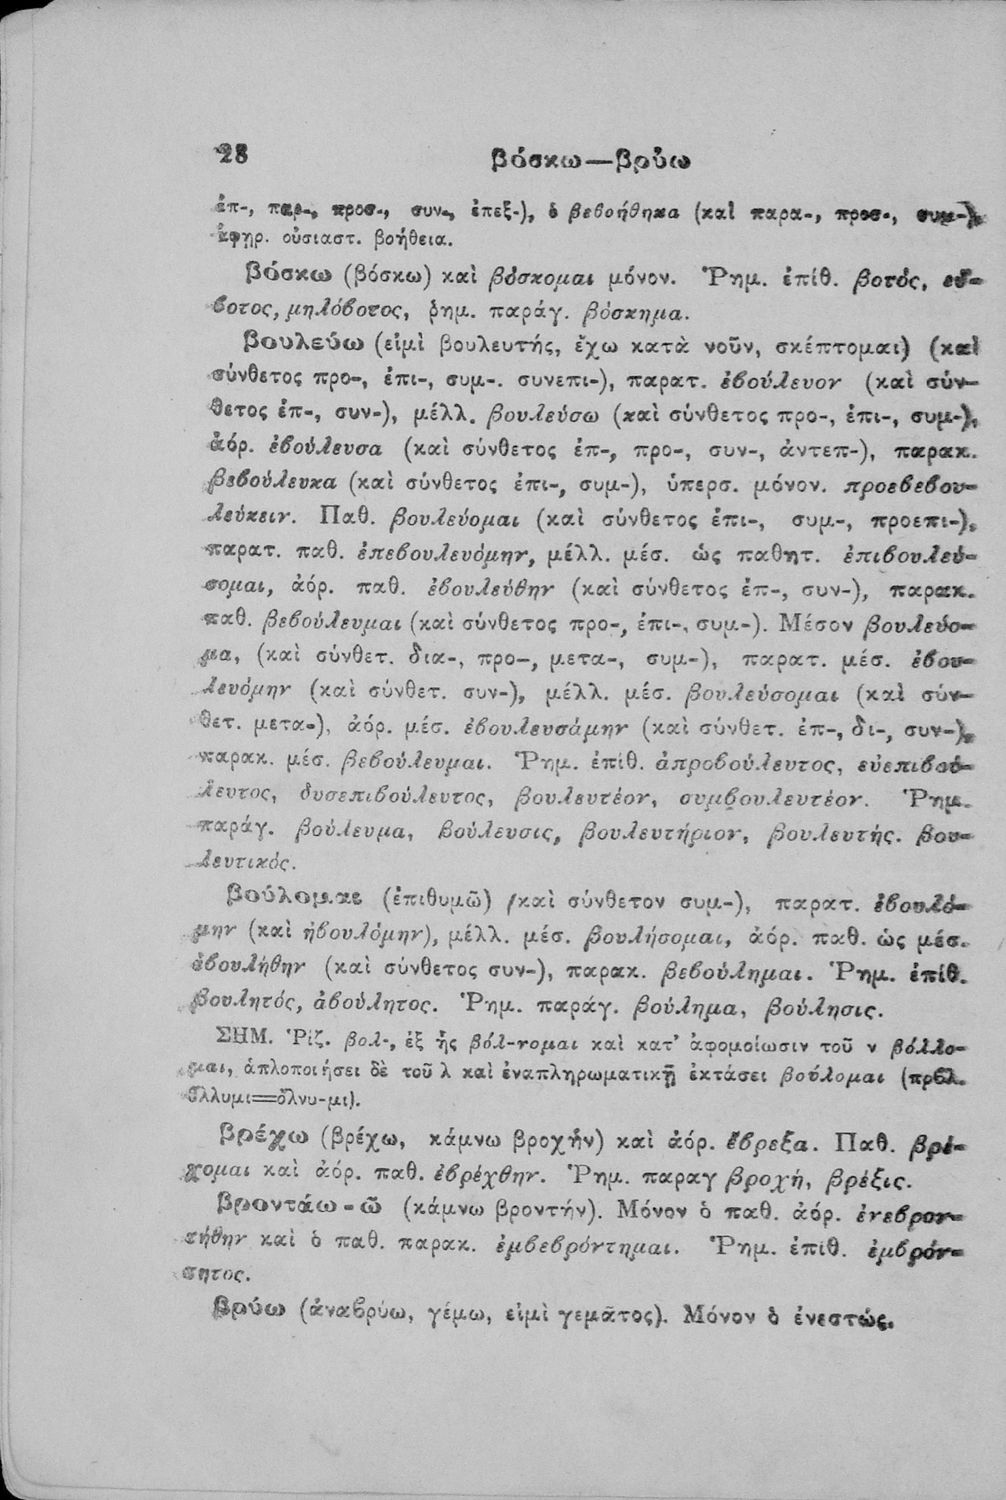 28
βόσκω—βρύω
ἐπ-, παρ-, προσ-, συν-, ἐπεξ-), ὁ βεβοήθηκα (καὶ παρα-, προσ-, συμ-),
ἀφηρ. οὐσιαστ. βοήθεια.
βόσκω (βόσκω) καὶ βόσκομαι μόνον. Ῥημ. ἐπίθ. βοτός, εὔ-
βοτος, μηλόβοτος, ῥημ. παράγ. βόσκημα.
βουλεύω (εἰμὶ βουλευτής, ἔχω κατὰ νοῦν, σκέπτομαι) (καὶ
σύνθετος προ-, ἐπι-, συμ-. συνεπι-), παρατ. ἐβούλευον (καὶ σύν-
θετος ἐπ-, συν-), μέλλ. βουλεύσω (καὶ σύνθετος προ-, ἐπι-, συμ-),
ἀόρ. ἐβούλευσα (καὶ σύνθετος ἐπ-, προ-, συν-, ἀντεπ-), παρακ.
βεβούλευκα (καὶ σύνθετος ἐπι-, συμ-), ὑπερσ. μόνον. προεβεβου-
λεύκειν. Παθ. βουλεύομαι (καὶ σύνθετος ἐπι-, συμ-, προεπι-),
παρατ. παθ. ἐπεβουλευόμην, μέλλ. μέσ. ὡς παθητ. ἐπιβουλεύ-
σομαι, ἀόρ. παθ. ἐβουλεύθην (καὶ σύνθετος ἐπ-, συν-), παρακ.
παθ. βεβούλευμαι (καὶ σύνθετος προ-, ἐπι-, συμ-). Μέσον βουλεύο-
μα, (καὶ σύνθετ. δια-, προ-, μετα-, συμ-), παρατ. μέσ. ἐβου-
λευόμην (καὶ σύνθετ. συν-), μέλλ. μέσ. βουλεύσομαι (καὶ σύν-
θετ. μετα-), ἀόρ. μέσ. ἐβουλευσάμην (καὶ σύνθετ. ἐπ-, δι-, συν-),
παρακ. μέσ. βεβούλευμαι. Ῥημ. ἐπίθ. ἀπροβούλευτος, εὐεπιβού-
λευτος, δυσεπιβούλευτος, βουλευτέον, συμβουλευτέον. Ῥημ.
παράγ. βούλευμα, βούλευσις, βουλευτήριον, βουλευτής. βου-
λευτικός.
βούλομαι (ἐπιθυμῶ) (καὶ σύνθετον συμ-), παρατ. ἐβουλό-
μην (καὶ ἠβουλόμην), μέλλ. μέσ. βουλήσομαι, ἀόρ. παθ. ὡς μέσ.
ἐβουλήθην (καὶ σύνθετος συν-), παρακ. βεβούλημαι. Ῥημ. ἐπίθ.
βουλητός, ἀβούλητος. Ῥημ. παράγ. βούλημα, βούλησις.
ΣΗΜ. Ῥίζ. βολ-, ἐξ ἧς βόλ-νομαι καὶ κατ' ἀφομοίωσιν τοῦ ν βόλλο-
μαι, ἁπλοποιήσει δὲ τοῦ λ καὶ ἐναπληρωματικῇ ἐκτάσει βούλομαι (πρβλ.
ὄλλυμι=ὄλνυ-μι).
βρέχω (βρέχω, κάμνω βροχὴν) καὶ ἀόρ. ἔβρεξα. Παθ. βρέ-
χομαι καὶ ἀόρ. παθ. ἐβρέχθην. Ῥημ. παραγ βροχή, βρέξις.
βροντάω-ῶ (κάμνω βροντήν). Μόνον ὁ παθ. ἀόρ. ἐνεβρον-
τήθην καὶ ὁ παθ. παρακ. ἐμβεβρόντημαι. Ῥημ. ἐπίθ. ἐμβρόν-
τητος.
βρύω (ἀναβρύω, γέμω, εἰμὶ γεμᾶτος). Μόνον ὁ ἐνεστώς.